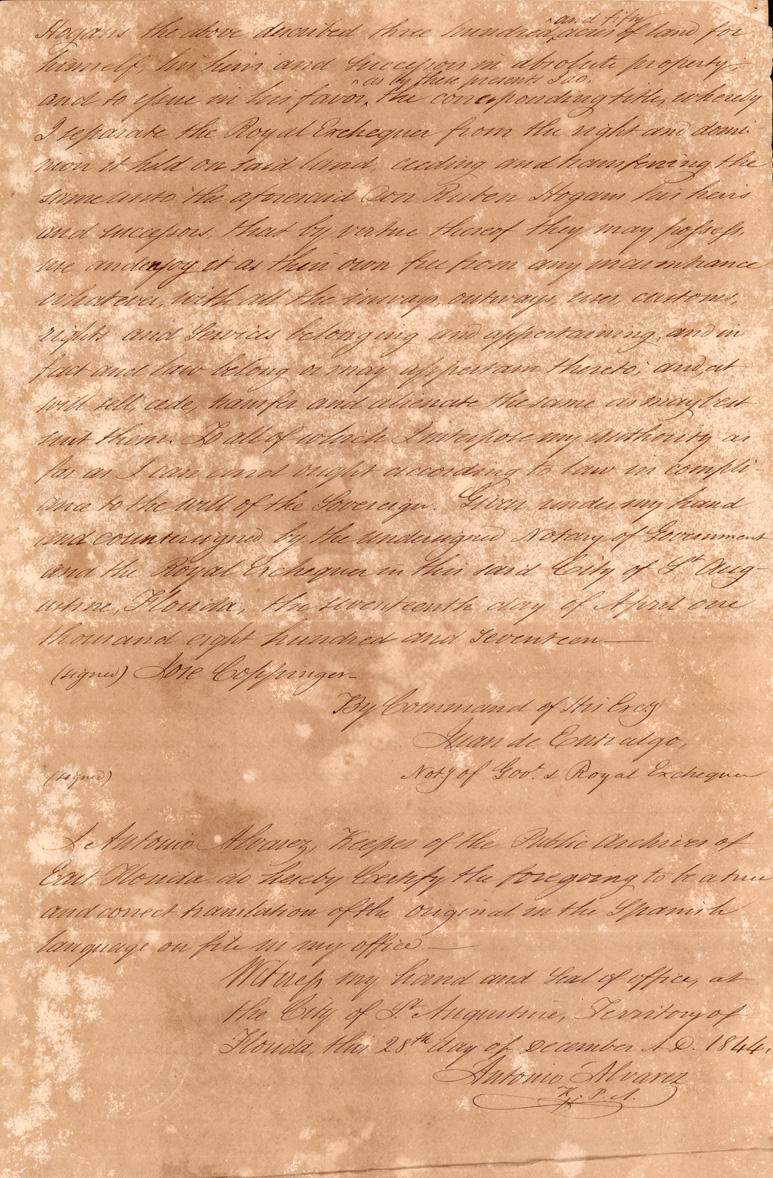 Hogans the above described three hundred ^and fifty acres of land for
himself, his heirs and successors in absolute property,
and to issue in his favor, ^as by these presents I do, the corresponding title, whereby
I separate the Royal Exchequer from the right and domi-
nion it held on said land, ceding and transferring the
same unto the aforesaid Don Ruben Hogans his heirs
and successors that by virtue thereof they may possess,
use and enjoy it as their own free from any incumbrance
whatever, with all the inways, outways, uses, customs,
rights and services belonging and appertaining, and in
fact and law belong or may appertain thereto; and, at
will sell, cede, transfer and alienate the same as may best
suit them. To all of which I interpose my authority as
far as I can and ought according to law in compli
ance to the will of the Sovereign. Given under my hand
and countersigned by the undersigned Notary of Government
and the Royal Exchequer in this said City of St. Aug-
ustine, Florida, the seventeenth day of April one
thousand eight hundred and seventeen—
(signed) Jose Coppinger—
By Command of His Excy
Juan de Entralgo,
(signed) Noty of Govt. & Royal Exchequer
I Antonio Alvarez, Keeper of the Public Archives of
East Florida do hereby Certify the foregoing to be a true
and correct translation of the original in the Spanish
language on file in my office—
Witness my hand and seal of office, at
the City of St. Augustine, Territory of
Florida, this 28th day of December A.D. 1844.
Antonio Alvarez
K. P. A.